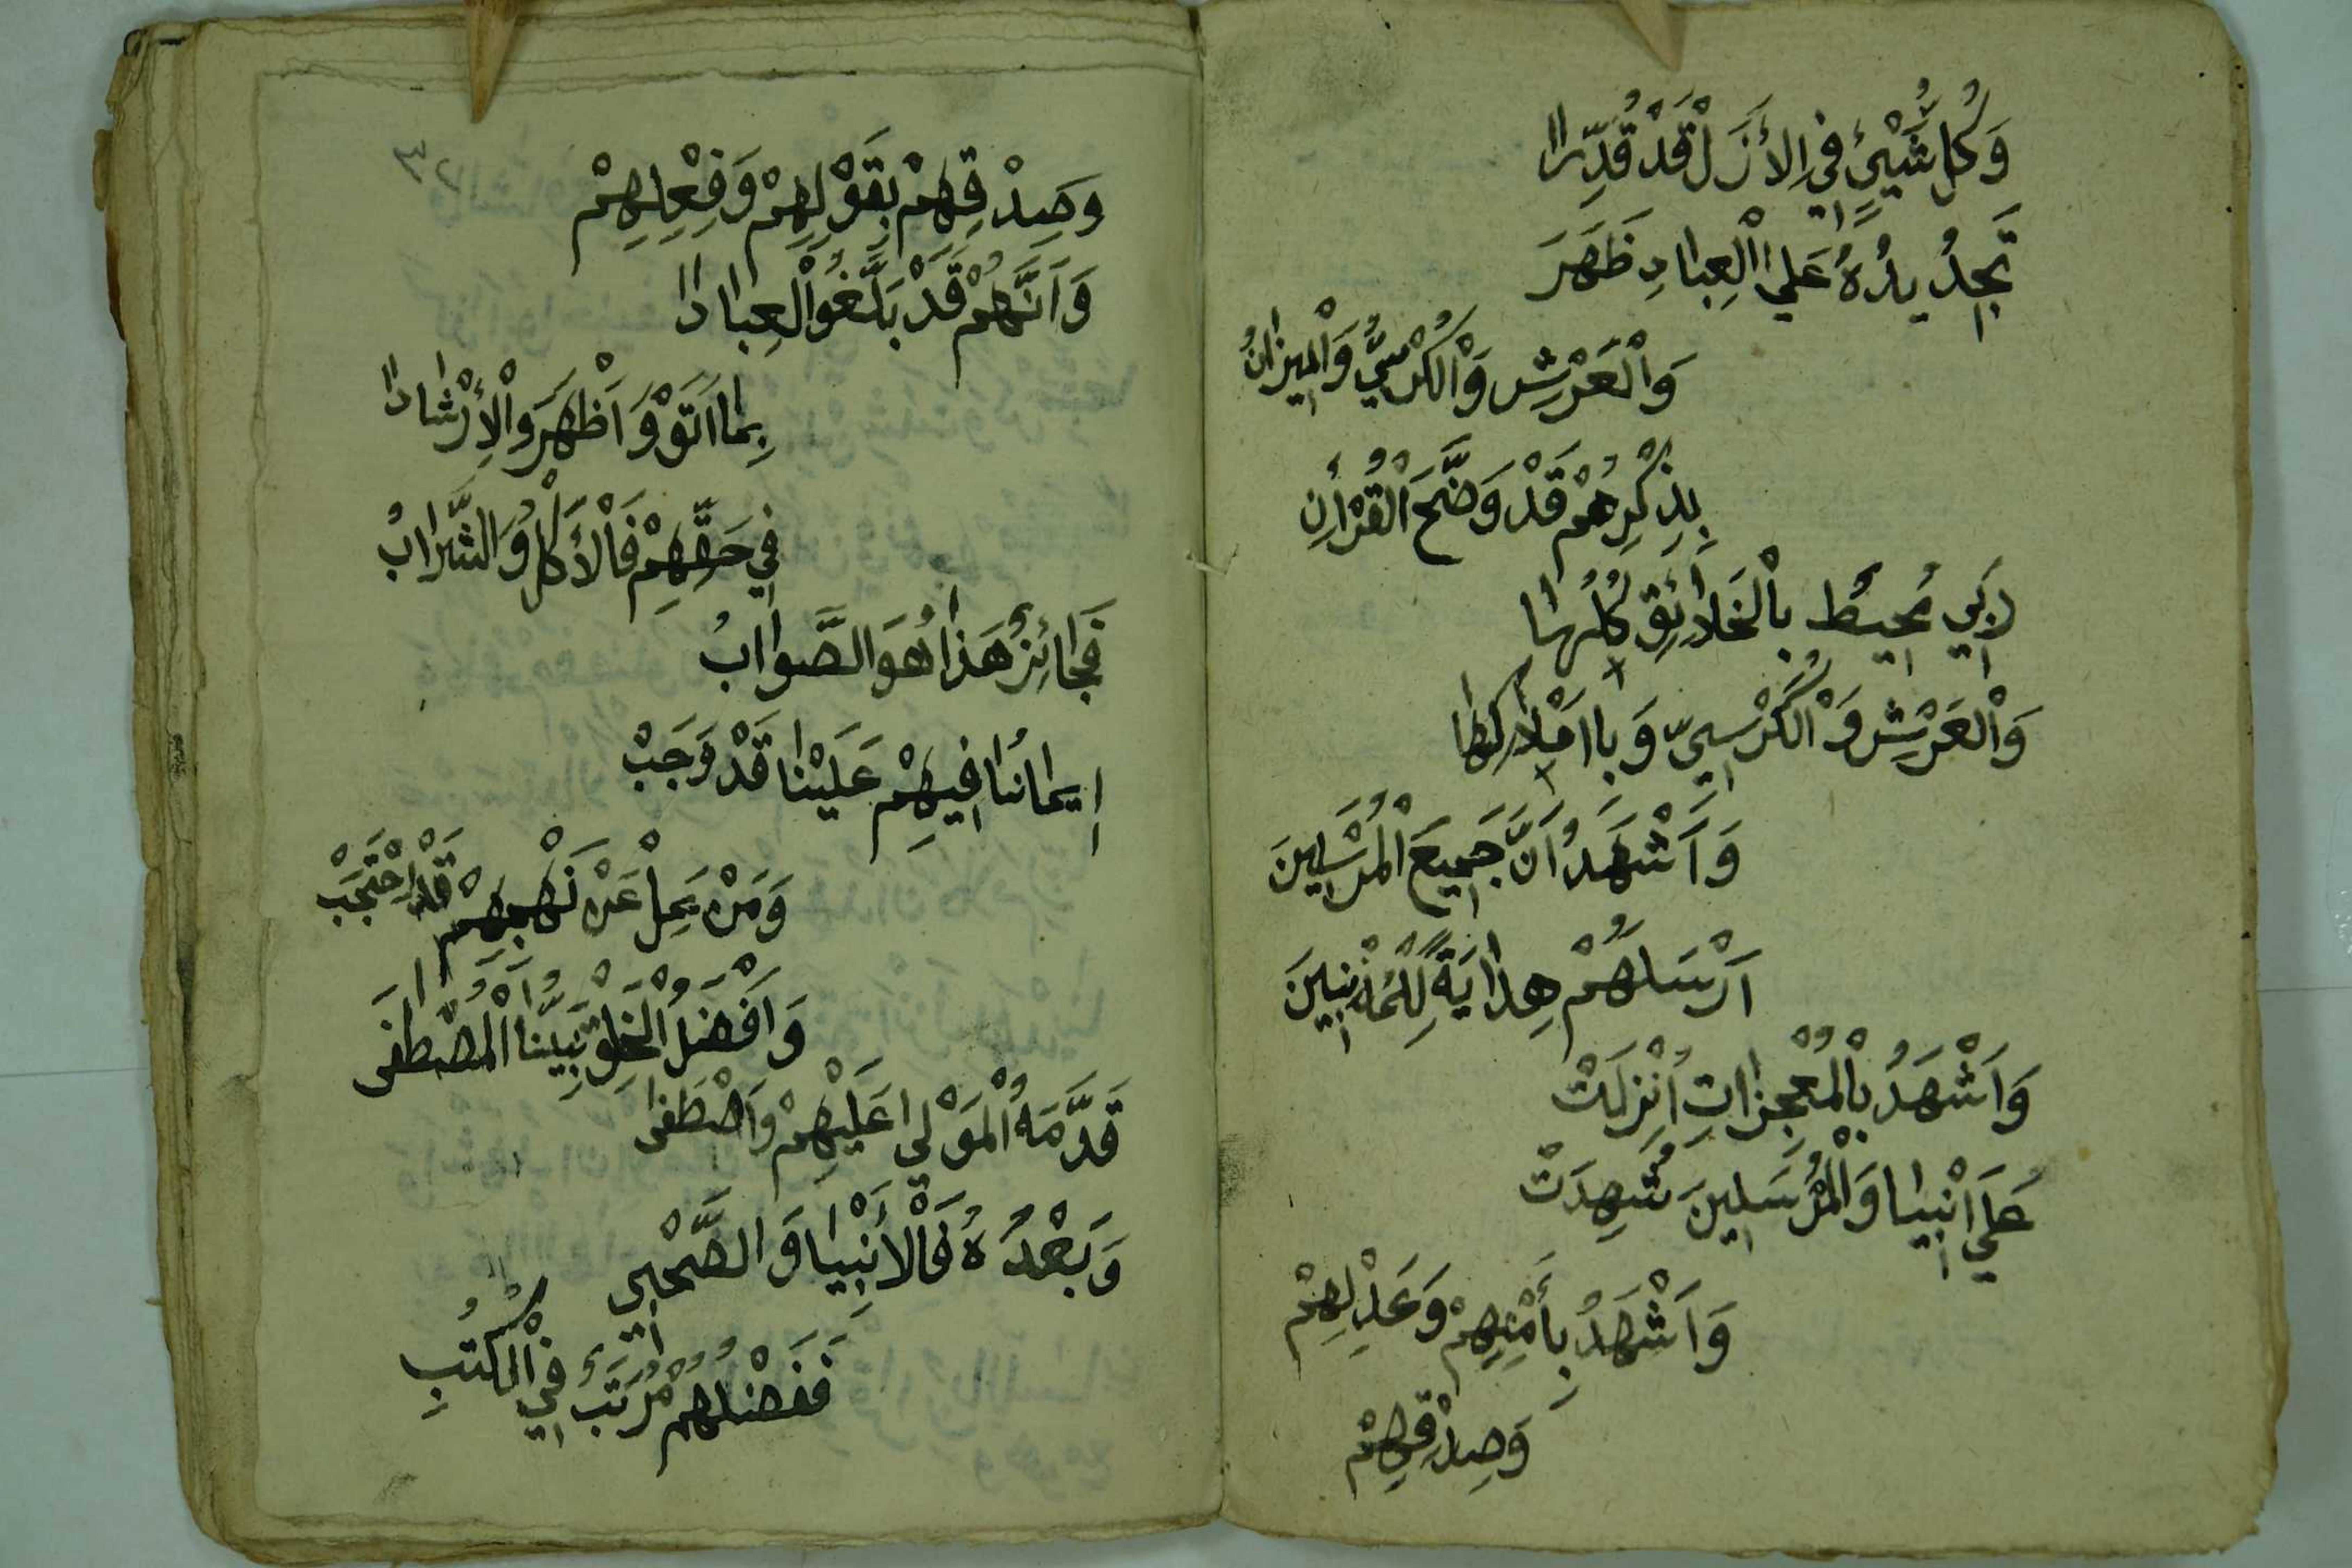 وَكُلُّ شَيْئٍ فِي الأَزَلْ قَدْ قُدِّرَا
تَجْدِيدُهُ عَلَي الْعِبَادِ ظَهَرَ
وَالْعَرْشِ وَالْكُرْسِيُّ وَالْمِيزَانُ
بِذِكْرِهِمْ قَدْ وَضَّحَ الْقُرْأَنِ
رَبِّي مُحِيطُ بِالْخَلَائِقِ كُلِّهَا
وَالْعَرْشِ وَالْكُرْسِيِّ وَبِاامْلَاكِهَا
وَاَشْهَدُ اَنَّ جَمِيعَ الْمُرْسَلِينَ
اَرْسَلَهُمْ هِدَايَةً لِلْمُذْنِبِينَ
وَاَشْهَدُ بِالْمُعْجِزَاتِ اُنْزِلَتْ
عَلَي اَنْبِيَا وَالْمُرْسَلِينَ شُهِدَتْ
وَاَشْهَدُ بِأَمْنِهِمْ وَعَدْلِهِمْ
وَصِدْقِهِمْ
٣٢
وَصِدْقِهِمْ بِقَوْلِهِمْ وَفِعْلِهِمْ
وَاَنَّهُمْ قَدْ بَلَّغُوا الْعِبَادَا
بِمَا اَتَوْ وَاَظْهَرَوا الْأِرْشَادَا
فِي حَقِّهِمْ فَالْأَكْلُ وَالشَّرَابُ
فَجَائِزٌ هَذَا هُوَ الصَّوَابُ
اِيمَانُنَا فِيهِمْ عَلَيْنَا قَدْ وَجَبْ
وَمَنْ يَمِلْ عَنْ نَهْجِهِمْ قَدْ اِحْتَجَبْ
وَاَفْضَلُ الْخَلْقِ نَبِيُّنَا الْمُصْطَفَى
قَدَّمَهُ الْمَوْلَي عَلَيْهِمْ وَاصْطَفَى
وَبَعْدُهُ فَالْأَنْبِيَا وَالصَّحْبِي
فَفَضْلُهُمْ مُرَتَّبُ فِي الْكُتْبِ